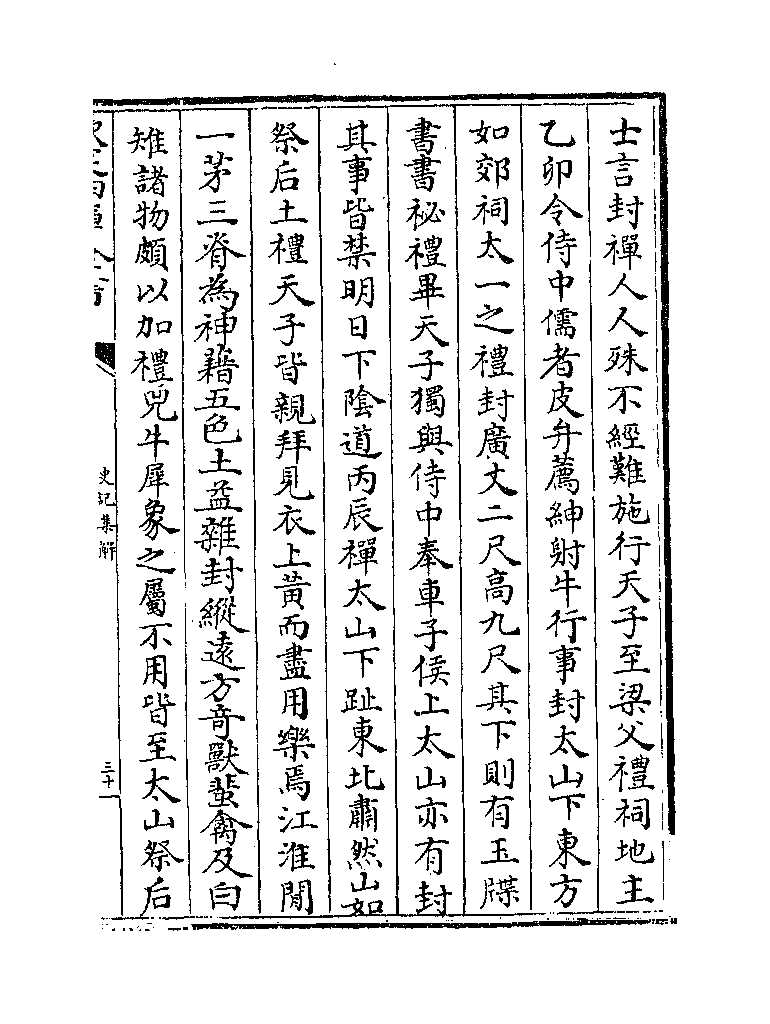 士言封禪人人殊不經難施行天子至梁父禮祠地主
乙卯令侍中儒者皮弁薦紳射牛行事封太山下東方
如郊祠太一之禮封廣丈二尺高九尺其下則有玉牒
書書祕禮畢天子獨與侍中奉車子侯上太山亦有封
其事皆禁明日下陰道丙辰禪太山下趾東北肅然山如
祭后土禮天子皆親拜見衣上黄而盡用樂焉江淮閒
一茅三脊為神藉五色土益雜封縱遠方竒獸蜚禽及白
雉諸物頗以加禮兕牛犀象之屬不用皆至太山祭后
史記集解
三十一